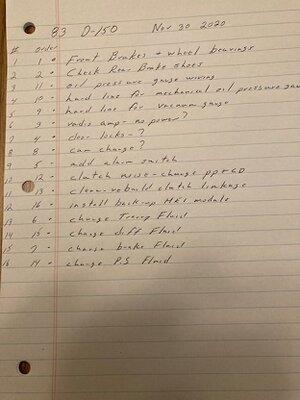 83 D-150 Nov 30 2020
# order
1 1 • Front Brakes + wheel bearings
2 2 • Check Rear Brake Shoes
3 11 • oil pressure gauge wiring
4 10 • hard line for mechanical oil pressure gau
5 9 • hard line for vacuum gauge
6 3 • radio amp - no power?
7 4 • door locks - ?
8 8 • cam change?
9 5 • add alarm switch
12 • clutch noise - change pp + CD
11 13 • clean - rebuild clutch leakage
12 16 • install back-up HEI module
13 6 • change Transp Fluid
14 15 • change diff Fluid
15 7 • change brake Fluid
16 14 • change P.S Fluid